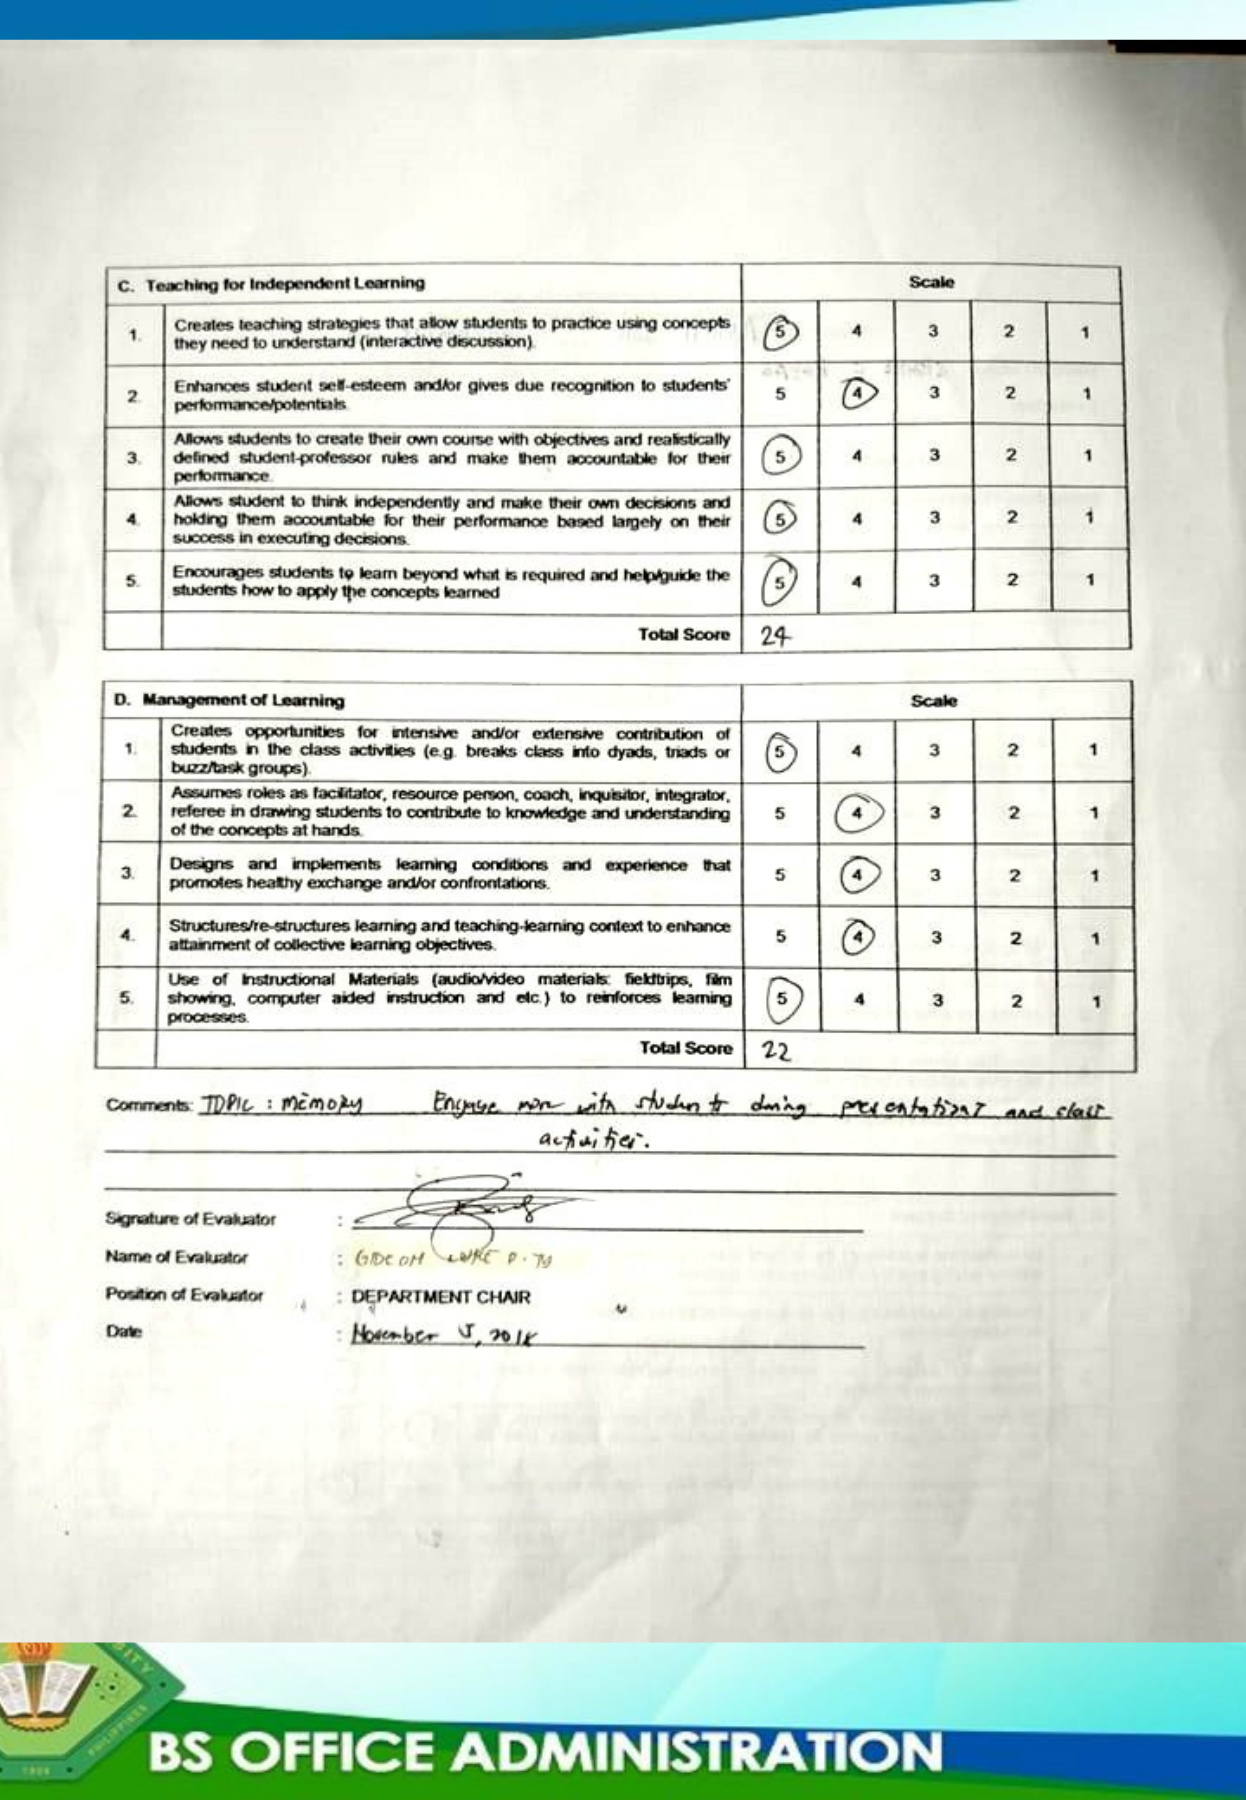 C. Teaching for Independent Learning Scale
1. Creates teaching strategies that allow students to practice using concepts
they need to understand (interactive discussion). 5 4 3 2 1
2. Enhances student self-esteem and/or gives due recognition to students'
performance/potentials. 5 4 3 2 1
3. Allows students to create their own course with objectives and realistically
defined student-professor rules and make them accountable for their
performance. 5 4 3 2 1
4. Allows student to think independently and make their own decisions and
holding them accountable for their performance based largely on their
success in executing decisions. 5 4 3 2 1
5. Encourages students to learn beyond what is required and help/guide the
students how to apply the concepts learned 5 4 3 2 1
Total Score 24
D. Management of Learning Scale
1. Creates opportunities for intensive and/or extensive contribution of
students in the class activities (e.g. breaks class into dyads, triads or
buzz/task groups). 5 4 3 2 1
2. Assumes roles as facilitator, resource person, coach, inquisitor, integrator,
referee in drawing students to contribute to knowledge and understanding
of the concepts at hands. 5 4 3 2 1
3. Designs and implements learning conditions and experience that
promotes healthy exchange and/or confrontations. 5 4 3 2 1
4. Structures/re-structures learning and teaching-learning context to enhance
attainment of collective learning objectives. 5 4 3 2 1
5. Use of Instructional Materials (audio/video materials: fieldtrips, film
showing, computer aided instruction and etc.) to reinforces learning
processes. 5 4 3 2 1
Total Score 22
Comments: TOPIC : MEMORY Engage more with students during presentations and class
activities.
Signature of Evaluator :
Name of Evaluator : P. Ty
Position of Evaluator : DEPARTMENT CHAIR
Date : November 5, 2018
PHILIPPINES
1906
BS OFFICE ADMINISTRATION